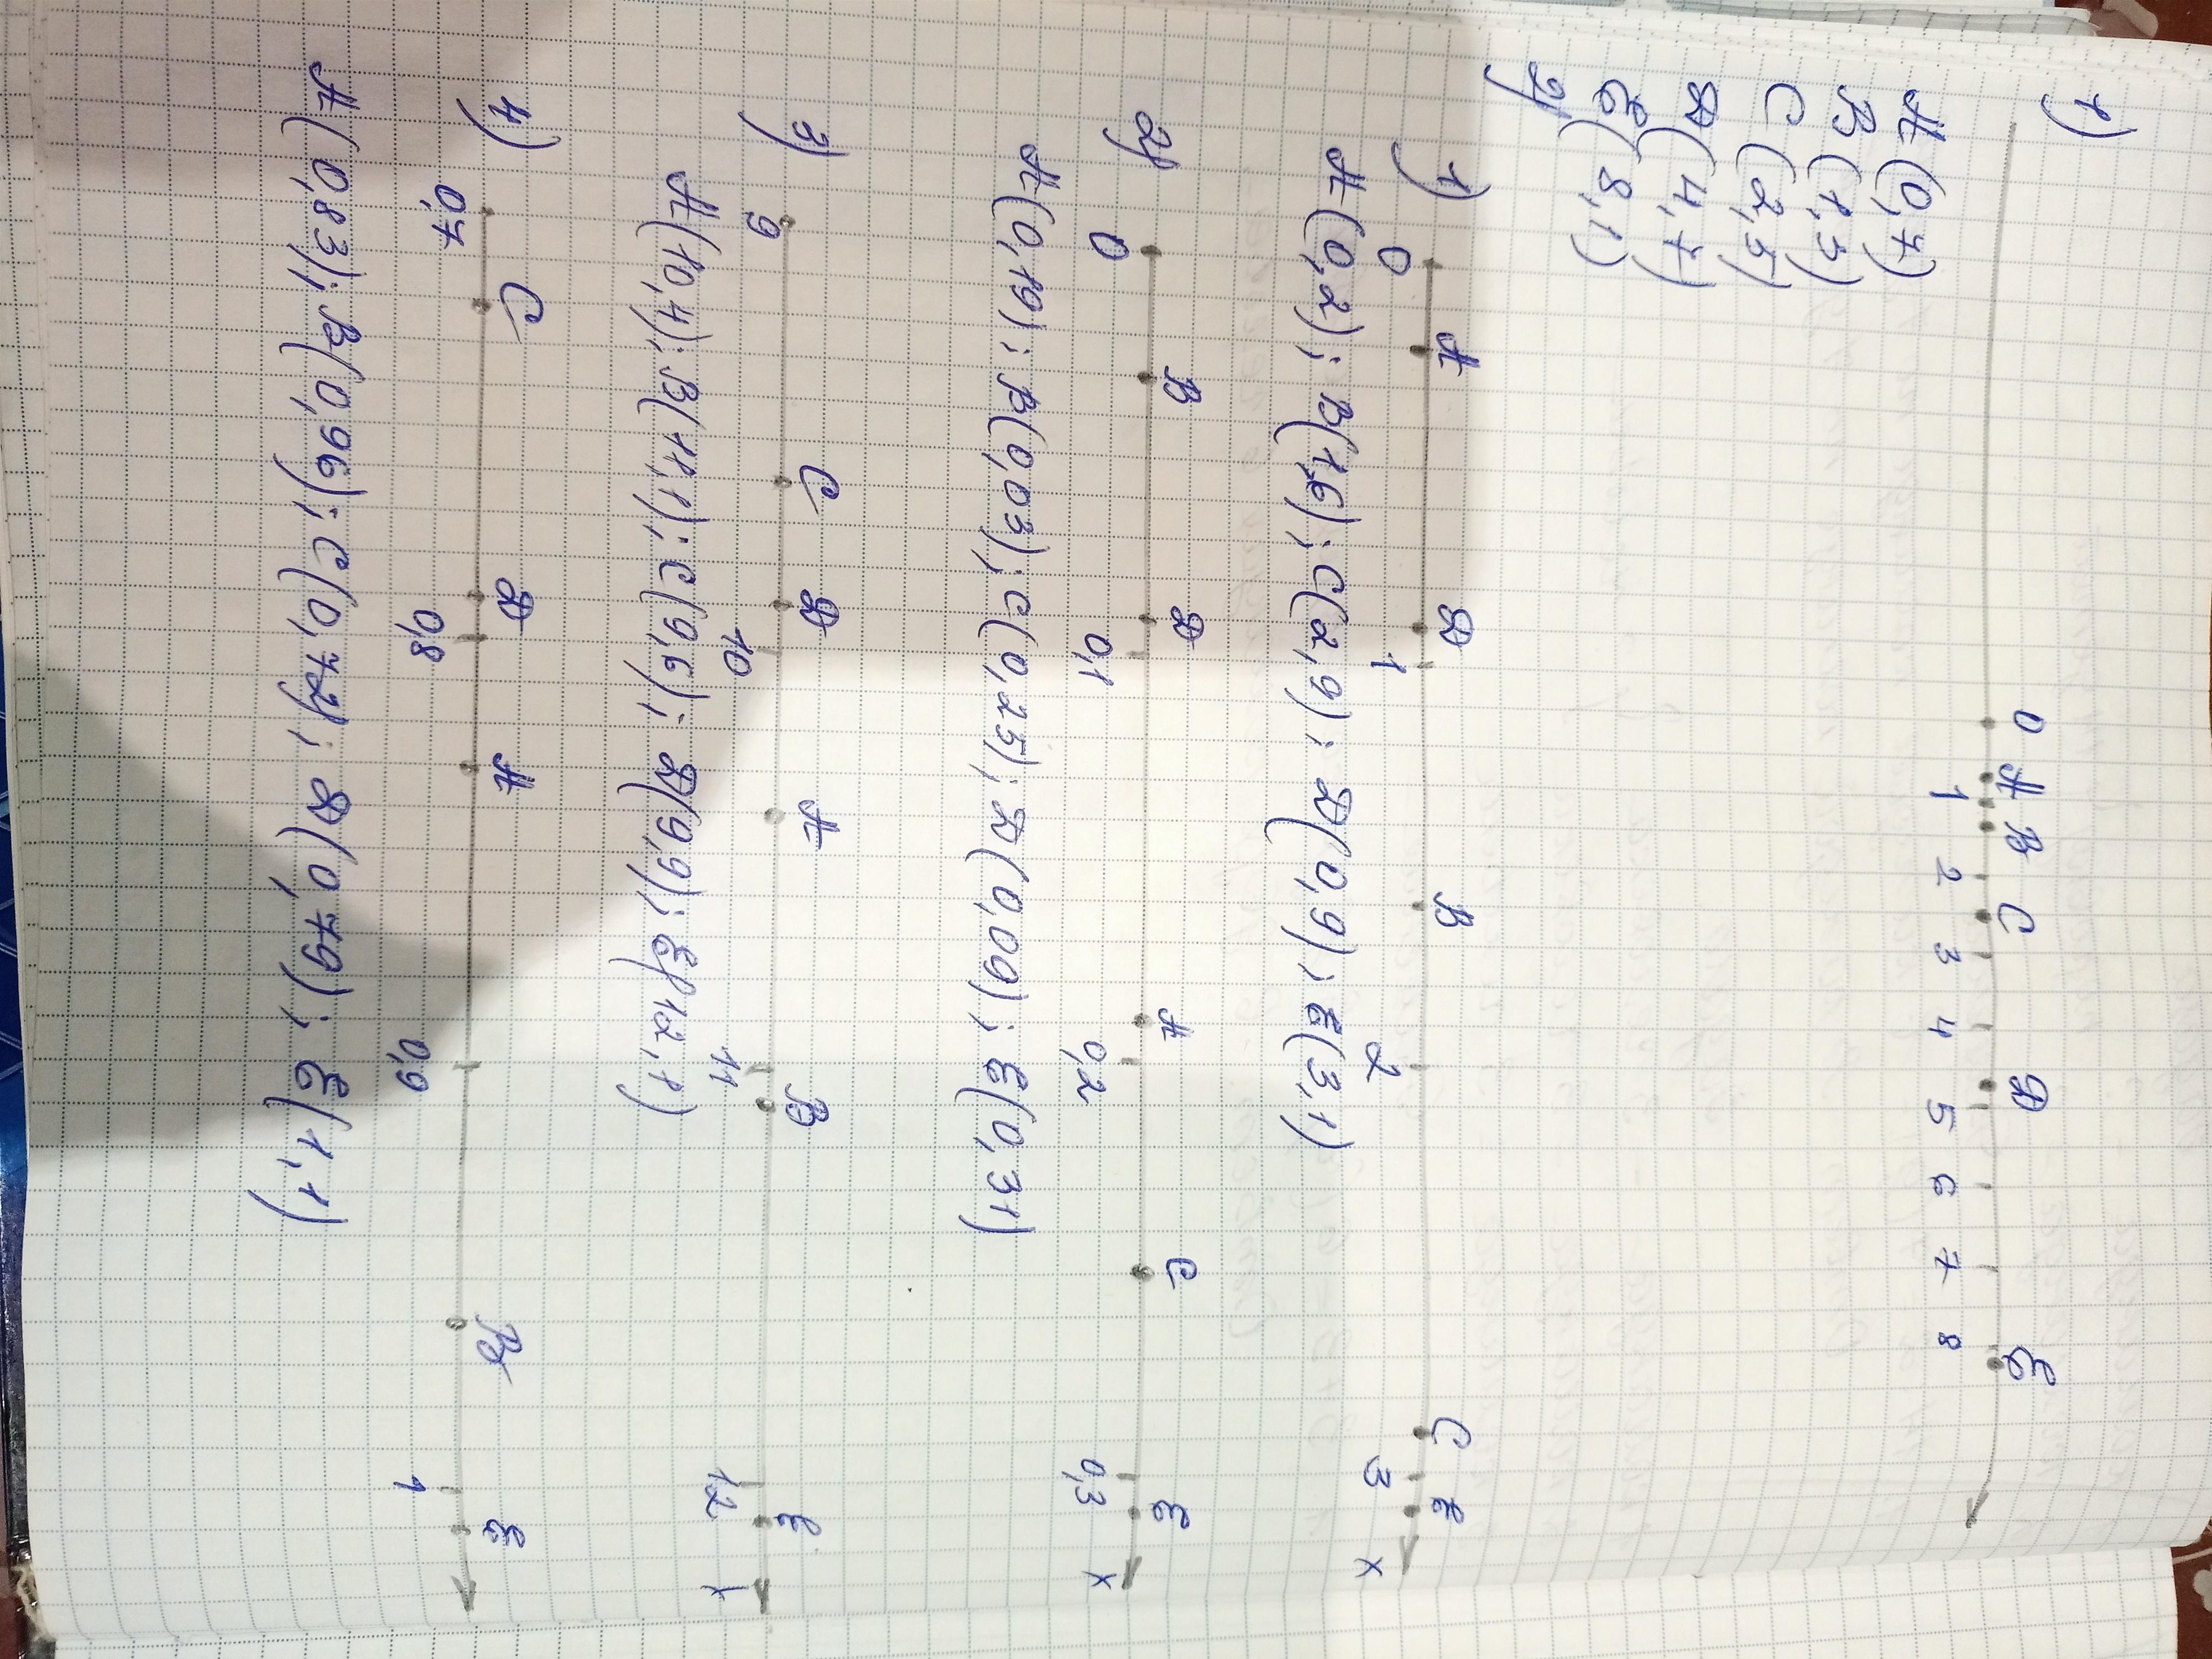 1)
0 A B C D E
1 2 3 4 5 6 7 8
A (0,7)
B (1,3)
C (2,5)
D (4,7)
E (8,1)
2)
1)
A D B C E
0 1 2 3 x
A (0,2); B (1,6); C (2,9); D (0,9); E (3,1)
2)
B D A C E
0 0,1 0,2 0,3 x
A (0,19); B (0,03); C (0,25); D (0,09); E (0,31)
3)
C D A B E
9 10 11 12 x
A (10,4); B (11,1); C (9,6); D (9,9); E (12,1)
4)
C D A B E
0,7 0,8 0,9 1
A (0,83); B (0,96); C (0,72); D (0,79); E (1,1)